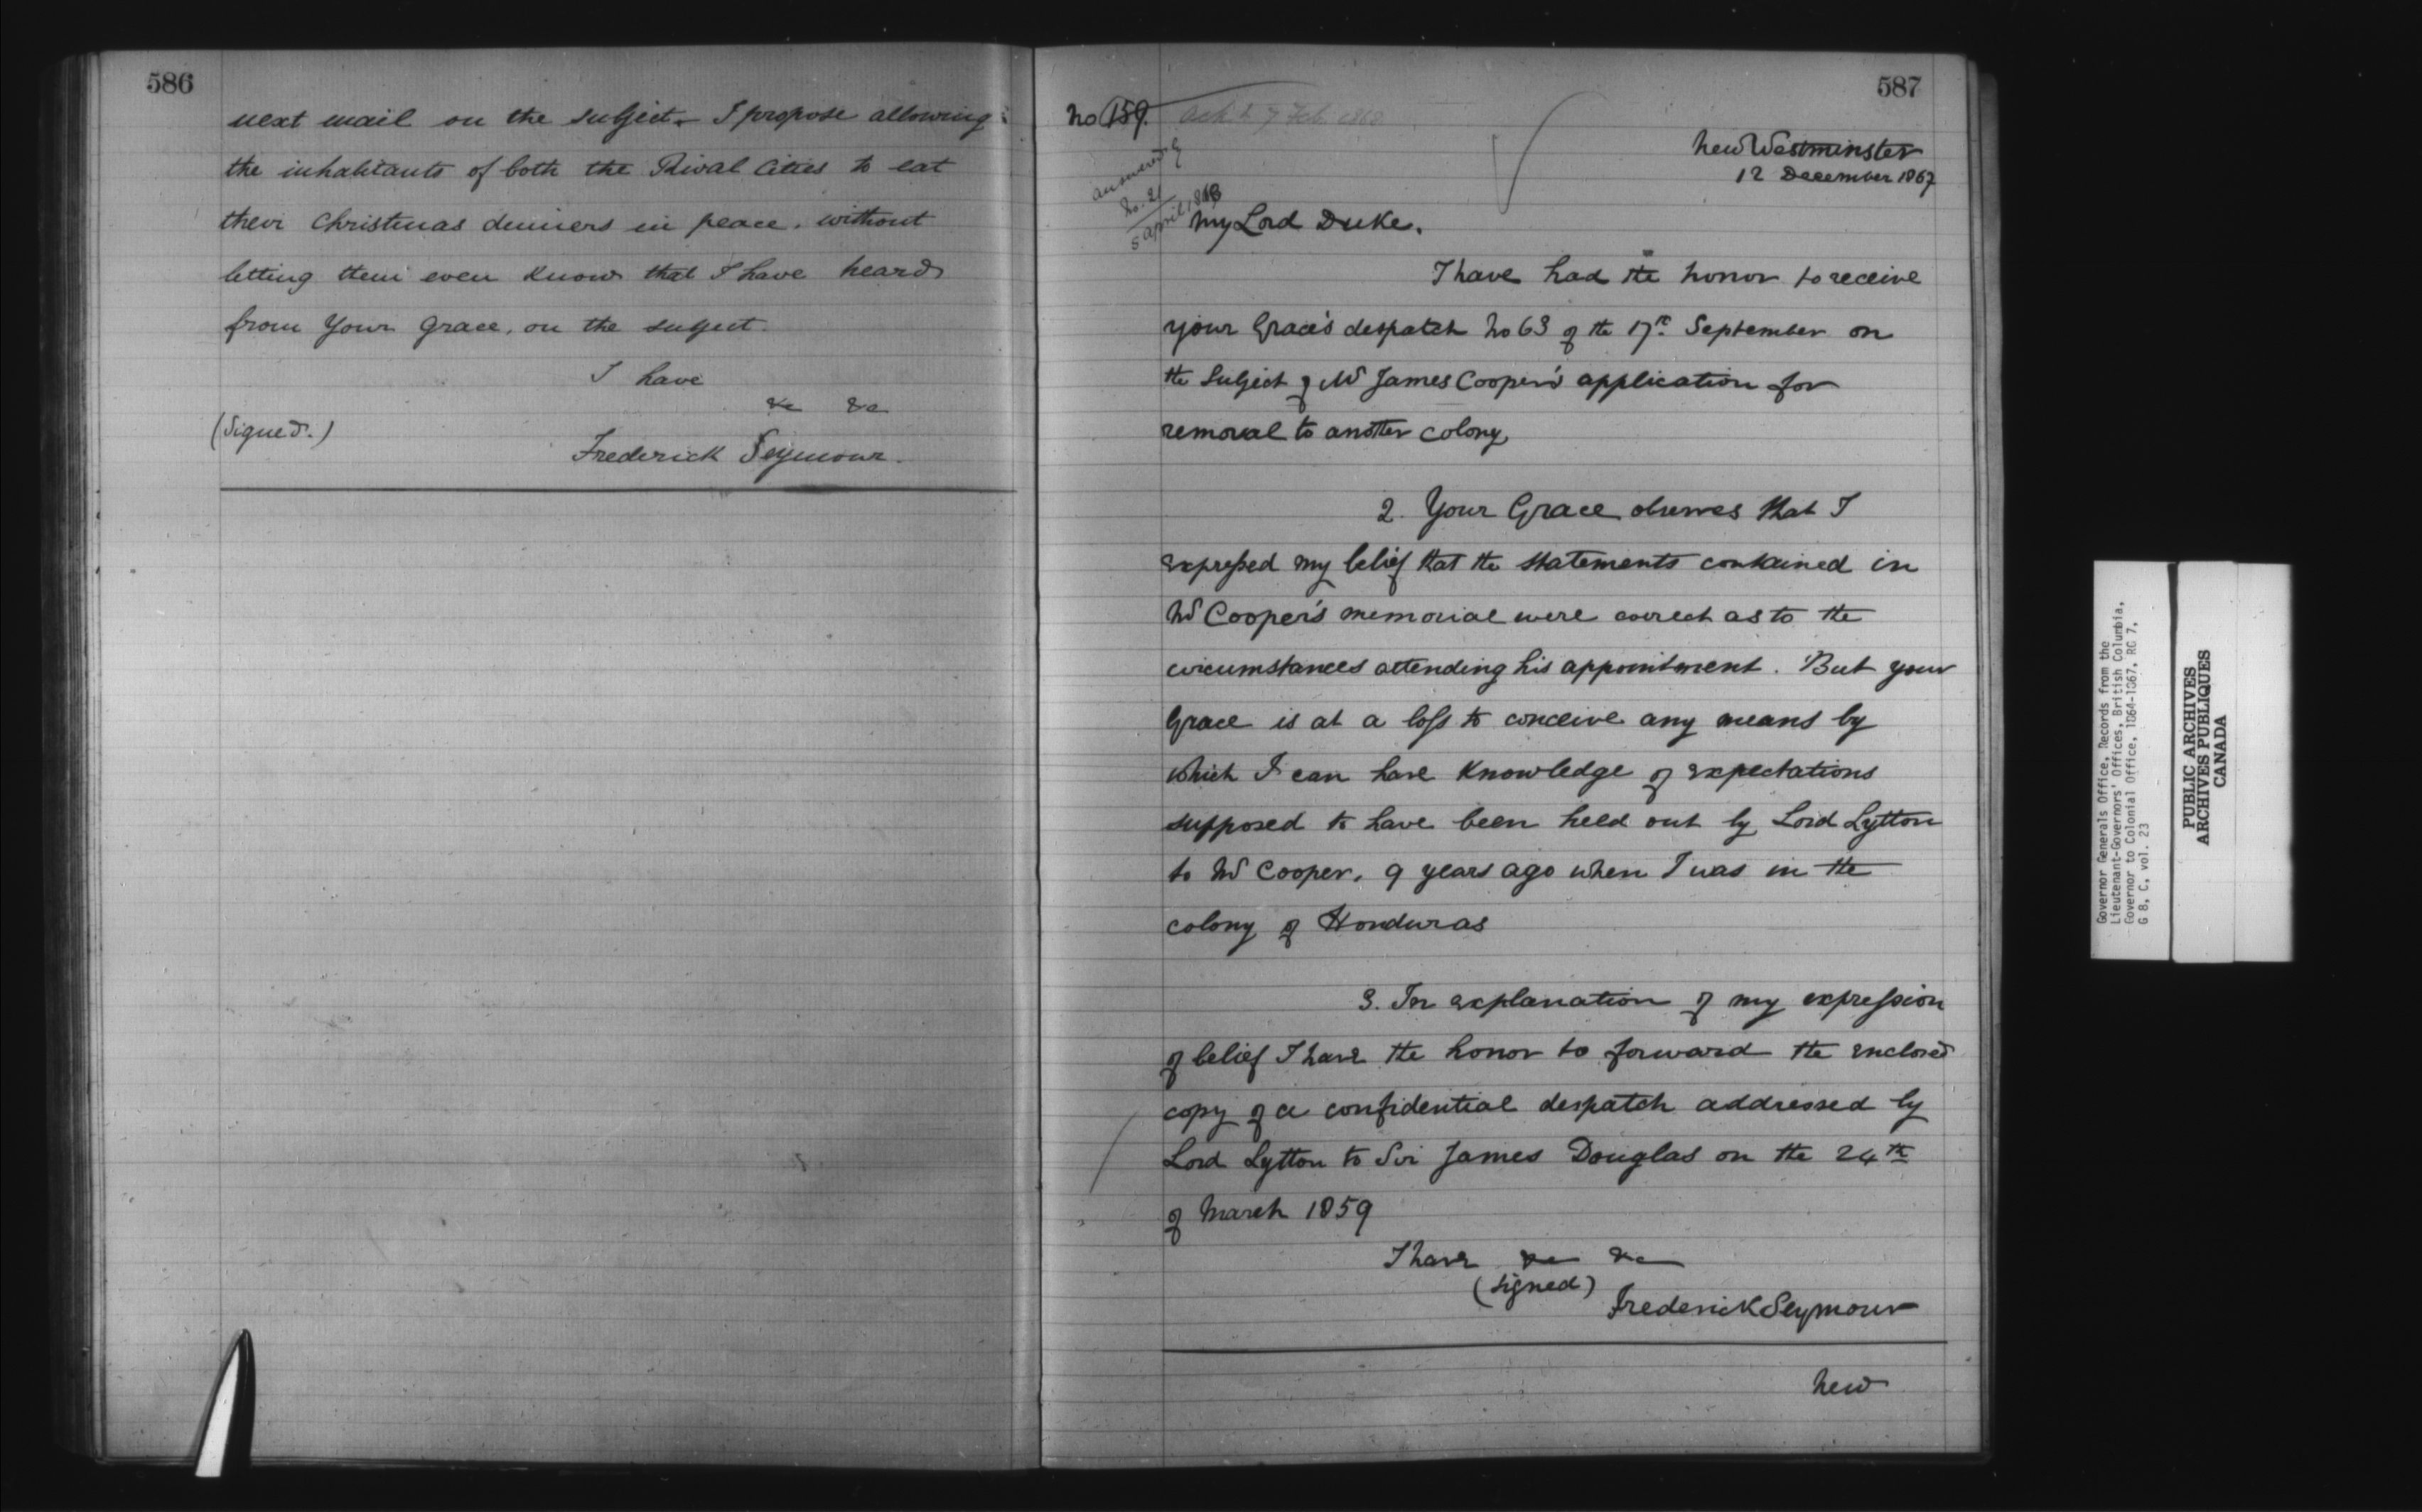 586
next mail on the subject. I propose allowing
the inhabitants of both the Rival Cities to eat
their Christmas dinners in peace, without
letting them even know that I have heard
from Your Grace, on the subject.
I have
&c &c
(Signed.)
Frederick Seymour.
587
No 159.
Ack.d 7 Feb. 1868
answered
No. 21
5 April 1868
New Westminster
12 December 1867
My Lord Duke,
I have had the honor to receive
your Grace's despatch No 63 of the 17th September on
the subject of Mr James Cooper's application for
removal to another colony
2. Your Grace observes that I
expressed my belief that the statements contained in
Mr Cooper's memorial were correct as to the
circumstances attending his appointment. But your
Grace is at a loss to conceive any means by
which I can have knowledge of expectations
supposed to have been held out by Lord Lytton
to Mr Cooper, 9 years ago when I was in the
colony of Honduras
3. In explanation of my expression
of belief I have the honor to forward the enclosed
copy of a confidential despatch addressed by
Lord Lytton to Sir James Douglas on the 24th
of March 1859
I have &c &c
(signed)
Frederick Seymour
New
Governor Generals Office, Records from the
Lieutenant-Governors' Offices, British Columbia,
Governor to Colonial Office, 1864-1867, RG 7,
G 8, C, vol. 23
PUBLIC ARCHIVES
ARCHIVES PUBLIQUES
CANADA